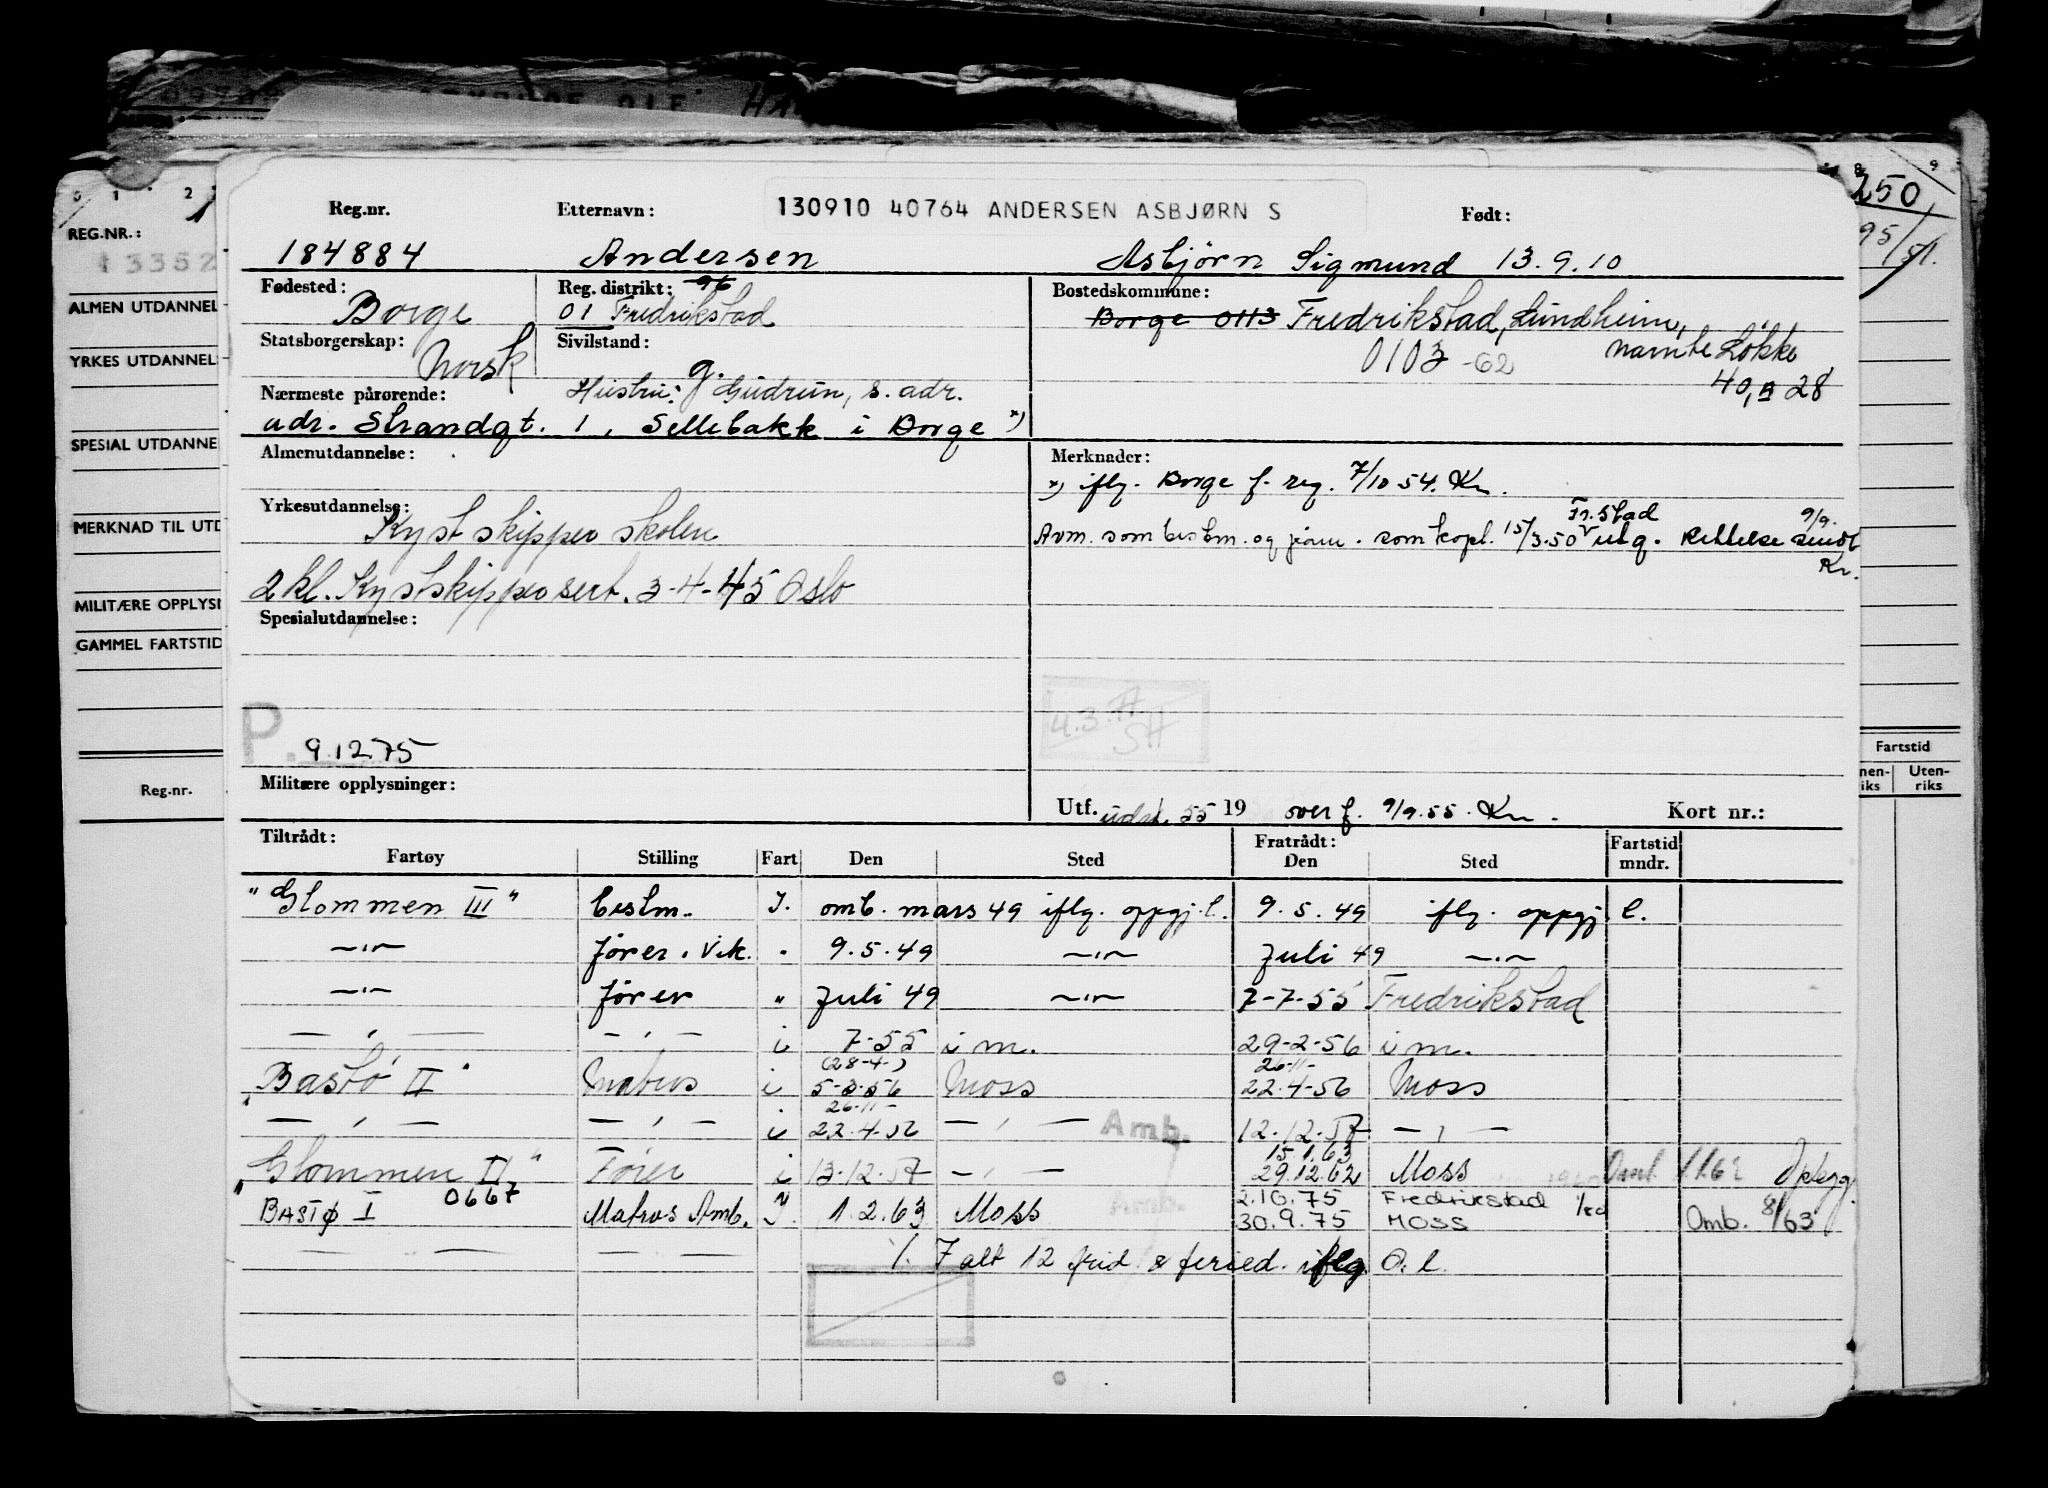 250
95/51.
0 1 2 8 9
REG.NR.:
13352
ALMEN UTDANNEL
YRKES UTDANNEL
SPESIAL UTDANNE
MERKNAD TIL UTD
MILITÆRE OPPLYSN
GAMMEL FARTSTID
Reg.nr.
Fartstid
nen-
iks
Uten-
riks
Reg.nr. Etternavn: 130910 40764 ANDERSEN ASBJØRN S Født:
184884 Andersen Asbjørn Sigmund 13.9.10
Fødested: Reg. distrikt: 96 Bostedskommune:
Borge 01 Fredrikstad Borge 0113 Fredrikstad, Lundheim,
Statsborgerskap: Sivilstand: 0103 -62 Narnte Løkke
Norsk g. 40, B 28
Nærmeste pårørende: Hustru: Gudrun, s. adr.
adr. Strandgt. 1, Sellebakk i Borge x)
Almenutdannelse: Merknader:
x) iflg. Borge f. reg. 7/10 54. Kr.
Yrkesutdannelse: Fr.stad 9/9.
Kystskipperskolen Avm. som bestm. og som kapt. 15/3.50 utg. Rettelse sendt
Kr.
2 kl. Kystskippersert. 3-4-45 Oslo
Spesialutdannelse:
4.3. A
SH
P. 9.12 75
Militære opplysninger:
Utf. udat. 55 19 over f. 9/9.55. Kr. Kort nr.:
Tiltrådt: Fratrådt: Fartstid
Fartøy Stilling Fart Den Sted Den Sted mndr.
"Glommen III" bestm. I. omb. mars 49 iflg. oppgj. l. 9.5.49 iflg. oppgj. l.
—"— fører, vik. " 9.5.49 —"— Juli 49 —"—
—"— fører " Juli 49 —"— 7-7-55 Fredrikstad
— " — — " — i 7-55 i m. 29-2-56 i m.
(28-4-) 26-11-
"Bastø II" Matros i 5-3-56 Moss 22.4-56 Moss
26-11-
— " — — " — i 22.4.56 — " — Amb. 12.12.57 — " —
15.1.63
"Glommen II" Fører i 13-12.57 — " — 29.12.62 Moss 1.1.62 Opplegg.
0667 2.10.75 Fredrikstad
"BASTØ I Matros Amb. I. 1.2.63 Moss Amb. 30.9.75 MOSS Omb. 8/63
— — — — /. I alt 12 frid. & feried. iflg. O. l.